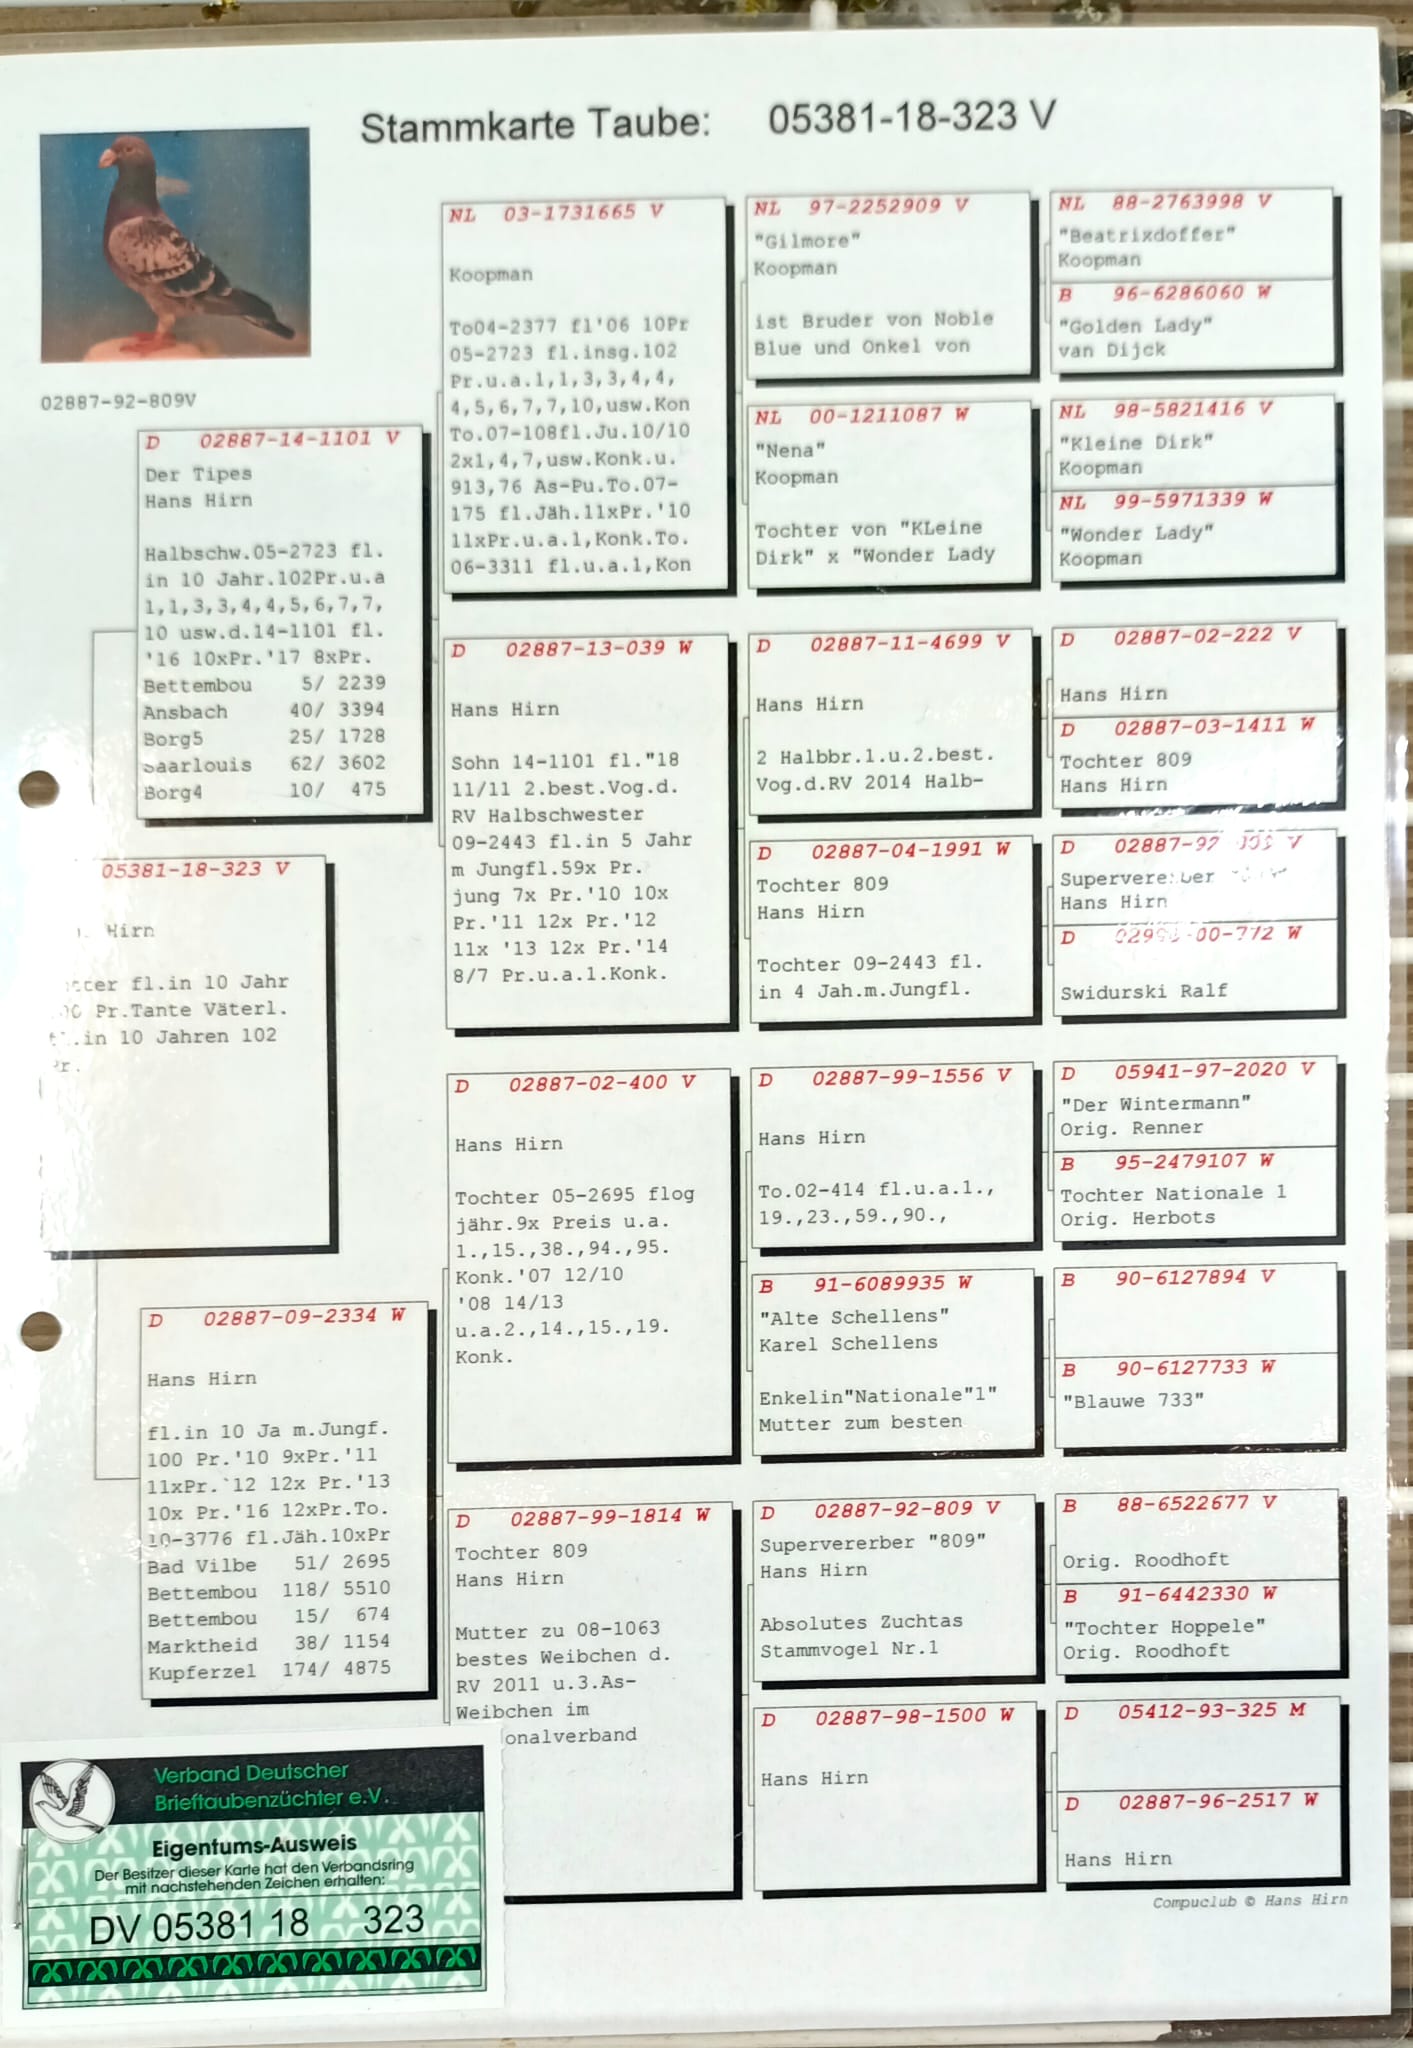 Stammkarte Taube: 05381-18-323 V
02887-92-809V
D 02887-14-1101 V
Der Tipes
Hans Hirn
Halbschw.05-2723 fl.
in 10 Jahr.102Pr.u.a
1,1,3,3,4,4,5,6,7,7,
10 usw.d.14-1101 fl.
'16 10xPr.'17 8xPr.
Bettembou 5/ 2239
Ansbach 40/ 3394
Borg5 25/ 1728
Saarlouis 62/ 3602
Borg4 10/ 475
05381-18-323 V
Hirn
fl.in 10 Jahr
Pr.Tante Väterl.
in 10 Jahren 102
Pr.
D 02887-09-2334 W
Hans Hirn
fl.in 10 Ja m.Jungf.
100 Pr.'10 9xPr.'11
11xPr.`12 12x Pr.'13
10x Pr.'16 12xPr.To.
10-3776 fl.Jäh.10xPr
Bad Vilbe 51/ 2695
Bettembou 118/ 5510
Bettembou 15/ 674
Marktheid 38/ 1154
Kupferzel 174/ 4875
NL 03-1731665 V
Koopman
To04-2377 fl'06 10Pr
05-2723 fl.insg.102
Pr.u.a.1,1,3,3,4,4,
4,5,6,7,7,10,usw.Kon
To.07-108fl.Ju.10/10
2x1,4,7,usw.Konk.u.
913,76 As-Pu.To.07-
175 fl.Jäh.11xPr.'10
11xPr.u.a.1,Konk.To.
06-3311 fl.u.a.1,Kon
D 02887-13-039 W
Hans Hirn
Sohn 14-1101 fl."18
11/11 2.best.Vog.d.
RV Halbschwester
09-2443 fl.in 5 Jahr
m Jungfl.59x Pr.
jung 7x Pr.'10 10x
Pr.'11 12x Pr.'12
11x '13 12x Pr.'14
8/7 Pr.u.a.1.Konk.
D 02887-02-400 V
Hans Hirn
Tochter 05-2695 flog
jähr.9x Preis u.a.
1.,15.,38.,94.,95.
Konk.'07 12/10
'08 14/13
u.a.2.,14.,15.,19.
Konk.
D 02887-99-1814 W
Tochter 809
Hans Hirn
Mutter zu 08-1063
bestes Weibchen d.
RV 2011 u.3.As-
Weibchen im
onalverband
NL 97-2252909 V
"Gilmore"
Koopman
ist Bruder von Noble
Blue und Onkel von
NL 00-1211087 W
"Nena"
Koopman
Tochter von "KLeine
Dirk" x "Wonder Lady
D 02887-11-4699 V
Hans Hirn
2 Halbbr.1.u.2.best.
Vog.d.RV 2014 Halb-
D 02887-04-1991 W
Tochter 809
Hans Hirn
Tochter 09-2443 fl.
in 4 Jah.m.Jungfl.
D 02887-99-1556 V
Hans Hirn
To.02-414 fl.u.a.1.,
19.,23.,59.,90.,
B 91-6089935 W
"Alte Schellens"
Karel Schellens
Enkelin"Nationale"1"
Mutter zum besten
D 02887-92-809 V
Supervererber "809"
Hans Hirn
Absolutes Zuchtas
Stammvogel Nr.1
D 02887-98-1500 W
Hans Hirn
NL 88-2763998 V
"Beatrixdoffer"
Koopman
B 96-6286060 W
"Golden Lady"
van Dijck
NL 98-5821416 V
"Kleine Dirk"
Koopman
NL 99-5971339 W
"Wonder Lady"
Koopman
D 02887-02-222 V
Hans Hirn
D 02887-03-1411 W
Tochter 809
Hans Hirn
D V
Supervererber
Hans Hirn
D W
Swidurski Ralf
D 05941-97-2020 V
"Der Wintermann"
Orig. Renner
B 95-2479107 W
Tochter Nationale 1
Orig. Herbots
B 90-6127894 V
B 90-6127733 W
"Blauwe 733"
B 88-6522677 V
Orig. Roodhoft
B 91-6442330 W
"Tochter Hoppele"
Orig. Roodhoft
D 05412-93-325 M
D 02887-96-2517 W
Hans Hirn
Compuclub © Hans Hirn
Verband Deutscher
Brieftaubenzüchter e.V.
Eigentums-Ausweis
Der Besitzer dieser Karte hat den Verbandsring
mit nachstehenden Zeichen erhalten:
DV 05381 18 323